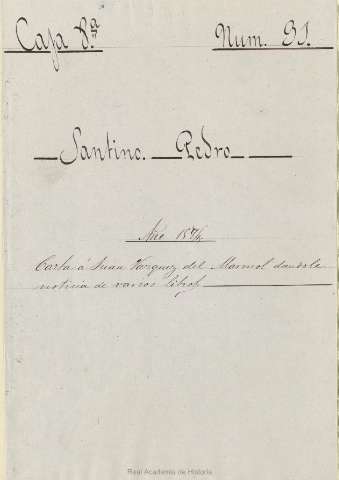 Caja 8.ª Num. 31.
Santino. Pedro
Año 1574.
Carta á Juan Vazquez del Marmol dandole
noticia de varios libros
Real Academia de Historia